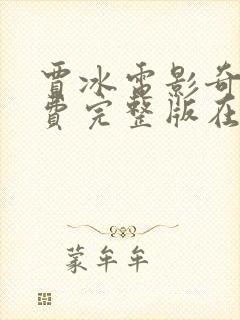 贾冰雷影奇
费完整版在
蒙牟牟